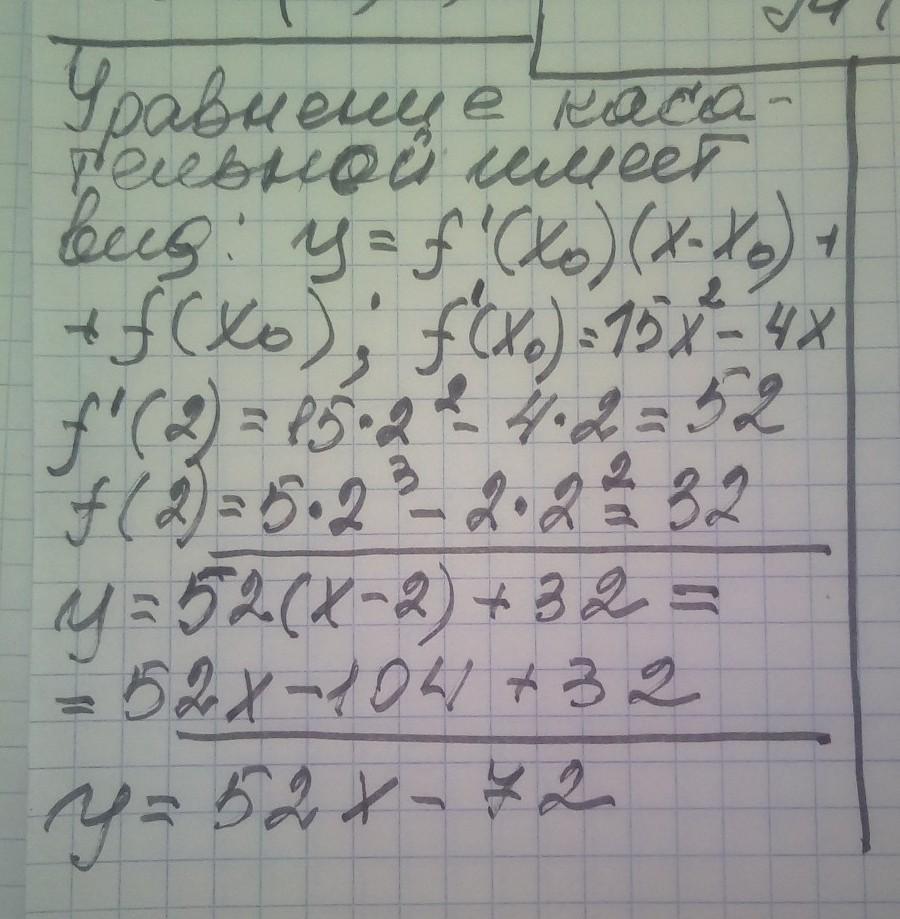 Уравнение каса-
тельной имеет
вид: y = f'(x₀)(x - x₀) +
+ f(x₀); f'(x₀) = 15x² - 4x
f'(2) = 15·2² - 4·2 = 52
f(2) = 5·2³ - 2·2² = 32
y = 52(x - 2) + 32 =
= 52x - 104 + 32
y = 52x - 72